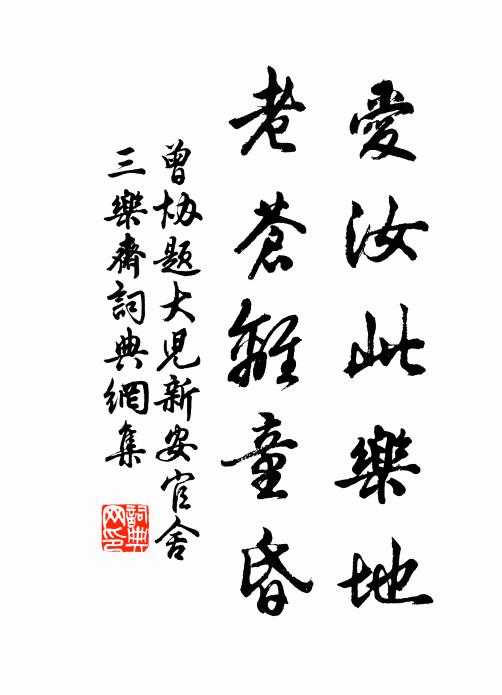 愛汝此樂地
老蒼離童昏
曾协題大児新安官舍
三樂齋詞典網集
詞典网印